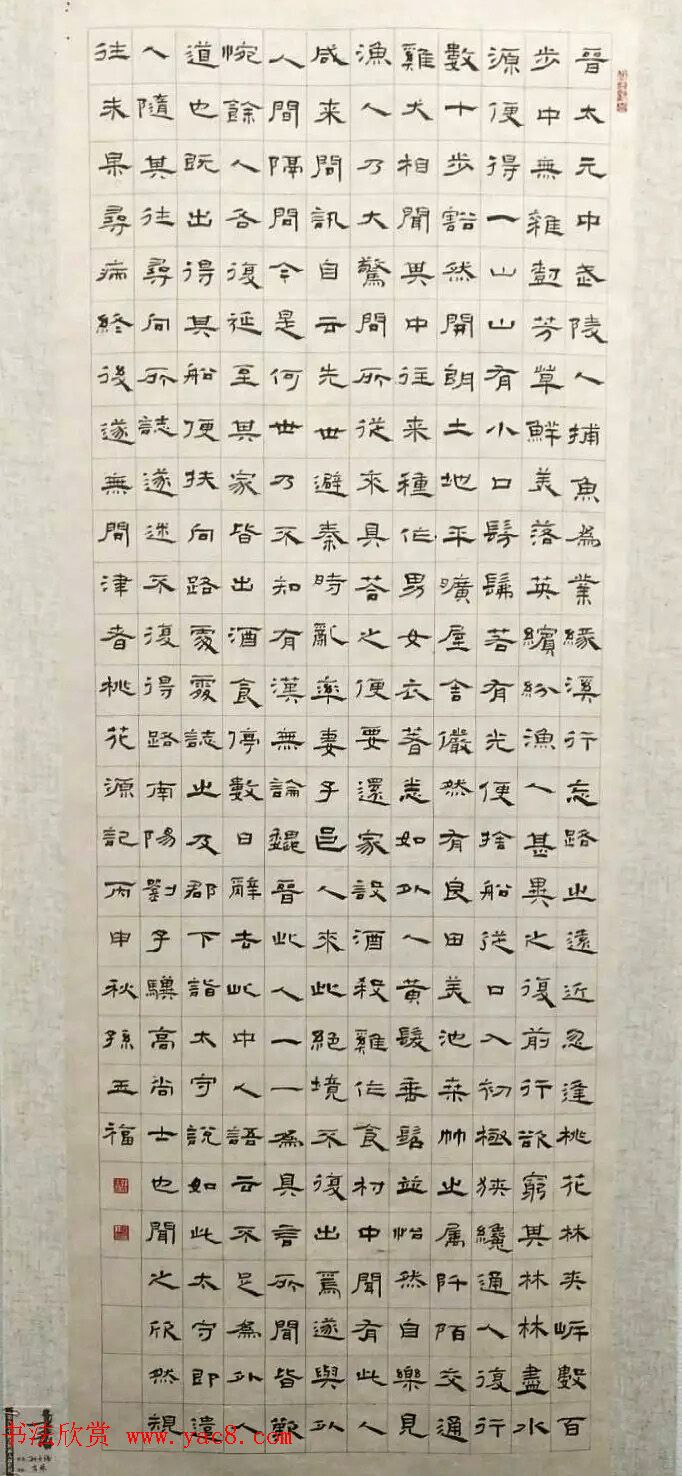 晉太元中武陵人捕魚為業緣溪行忘路之遠近忽逢桃花林夾岸數百
步中無雜樹芳草鮮美落英繽紛漁人甚異之復前行欲窮其林林盡水
源便得一山山有小口髣髴若有光便捨船從口入初極狹纔通人復行
數十步豁然開朗土地平曠屋舍儼然有良田美池桑竹之属阡陌交通
雞犬相聞其中往来種作男女衣著悉如外人黃髮垂髫並怡然自樂見
漁人乃大驚問所從來具荅之便要還家設酒殺雞作食村中聞有此人
咸来問訊自云先世避秦時亂率妻子邑人來此絕境不復出焉遂與外
人間隔問今是何世乃不知有漢無論魏晉此人一一為具言所聞皆歎
惋餘人各復延至其家皆出酒食停數日辭去此中人語云不足為外人
道也既出得其船便扶向路處處誌之及郡下詣太守說如此太守即遣
人隨其往尋向所誌遂迷不復得路南陽劉子驥高尚士也聞之欣然規
往未果尋病終後遂無問津者桃花源記丙申秋孫玉福
书法欣赏 www.yac8.com